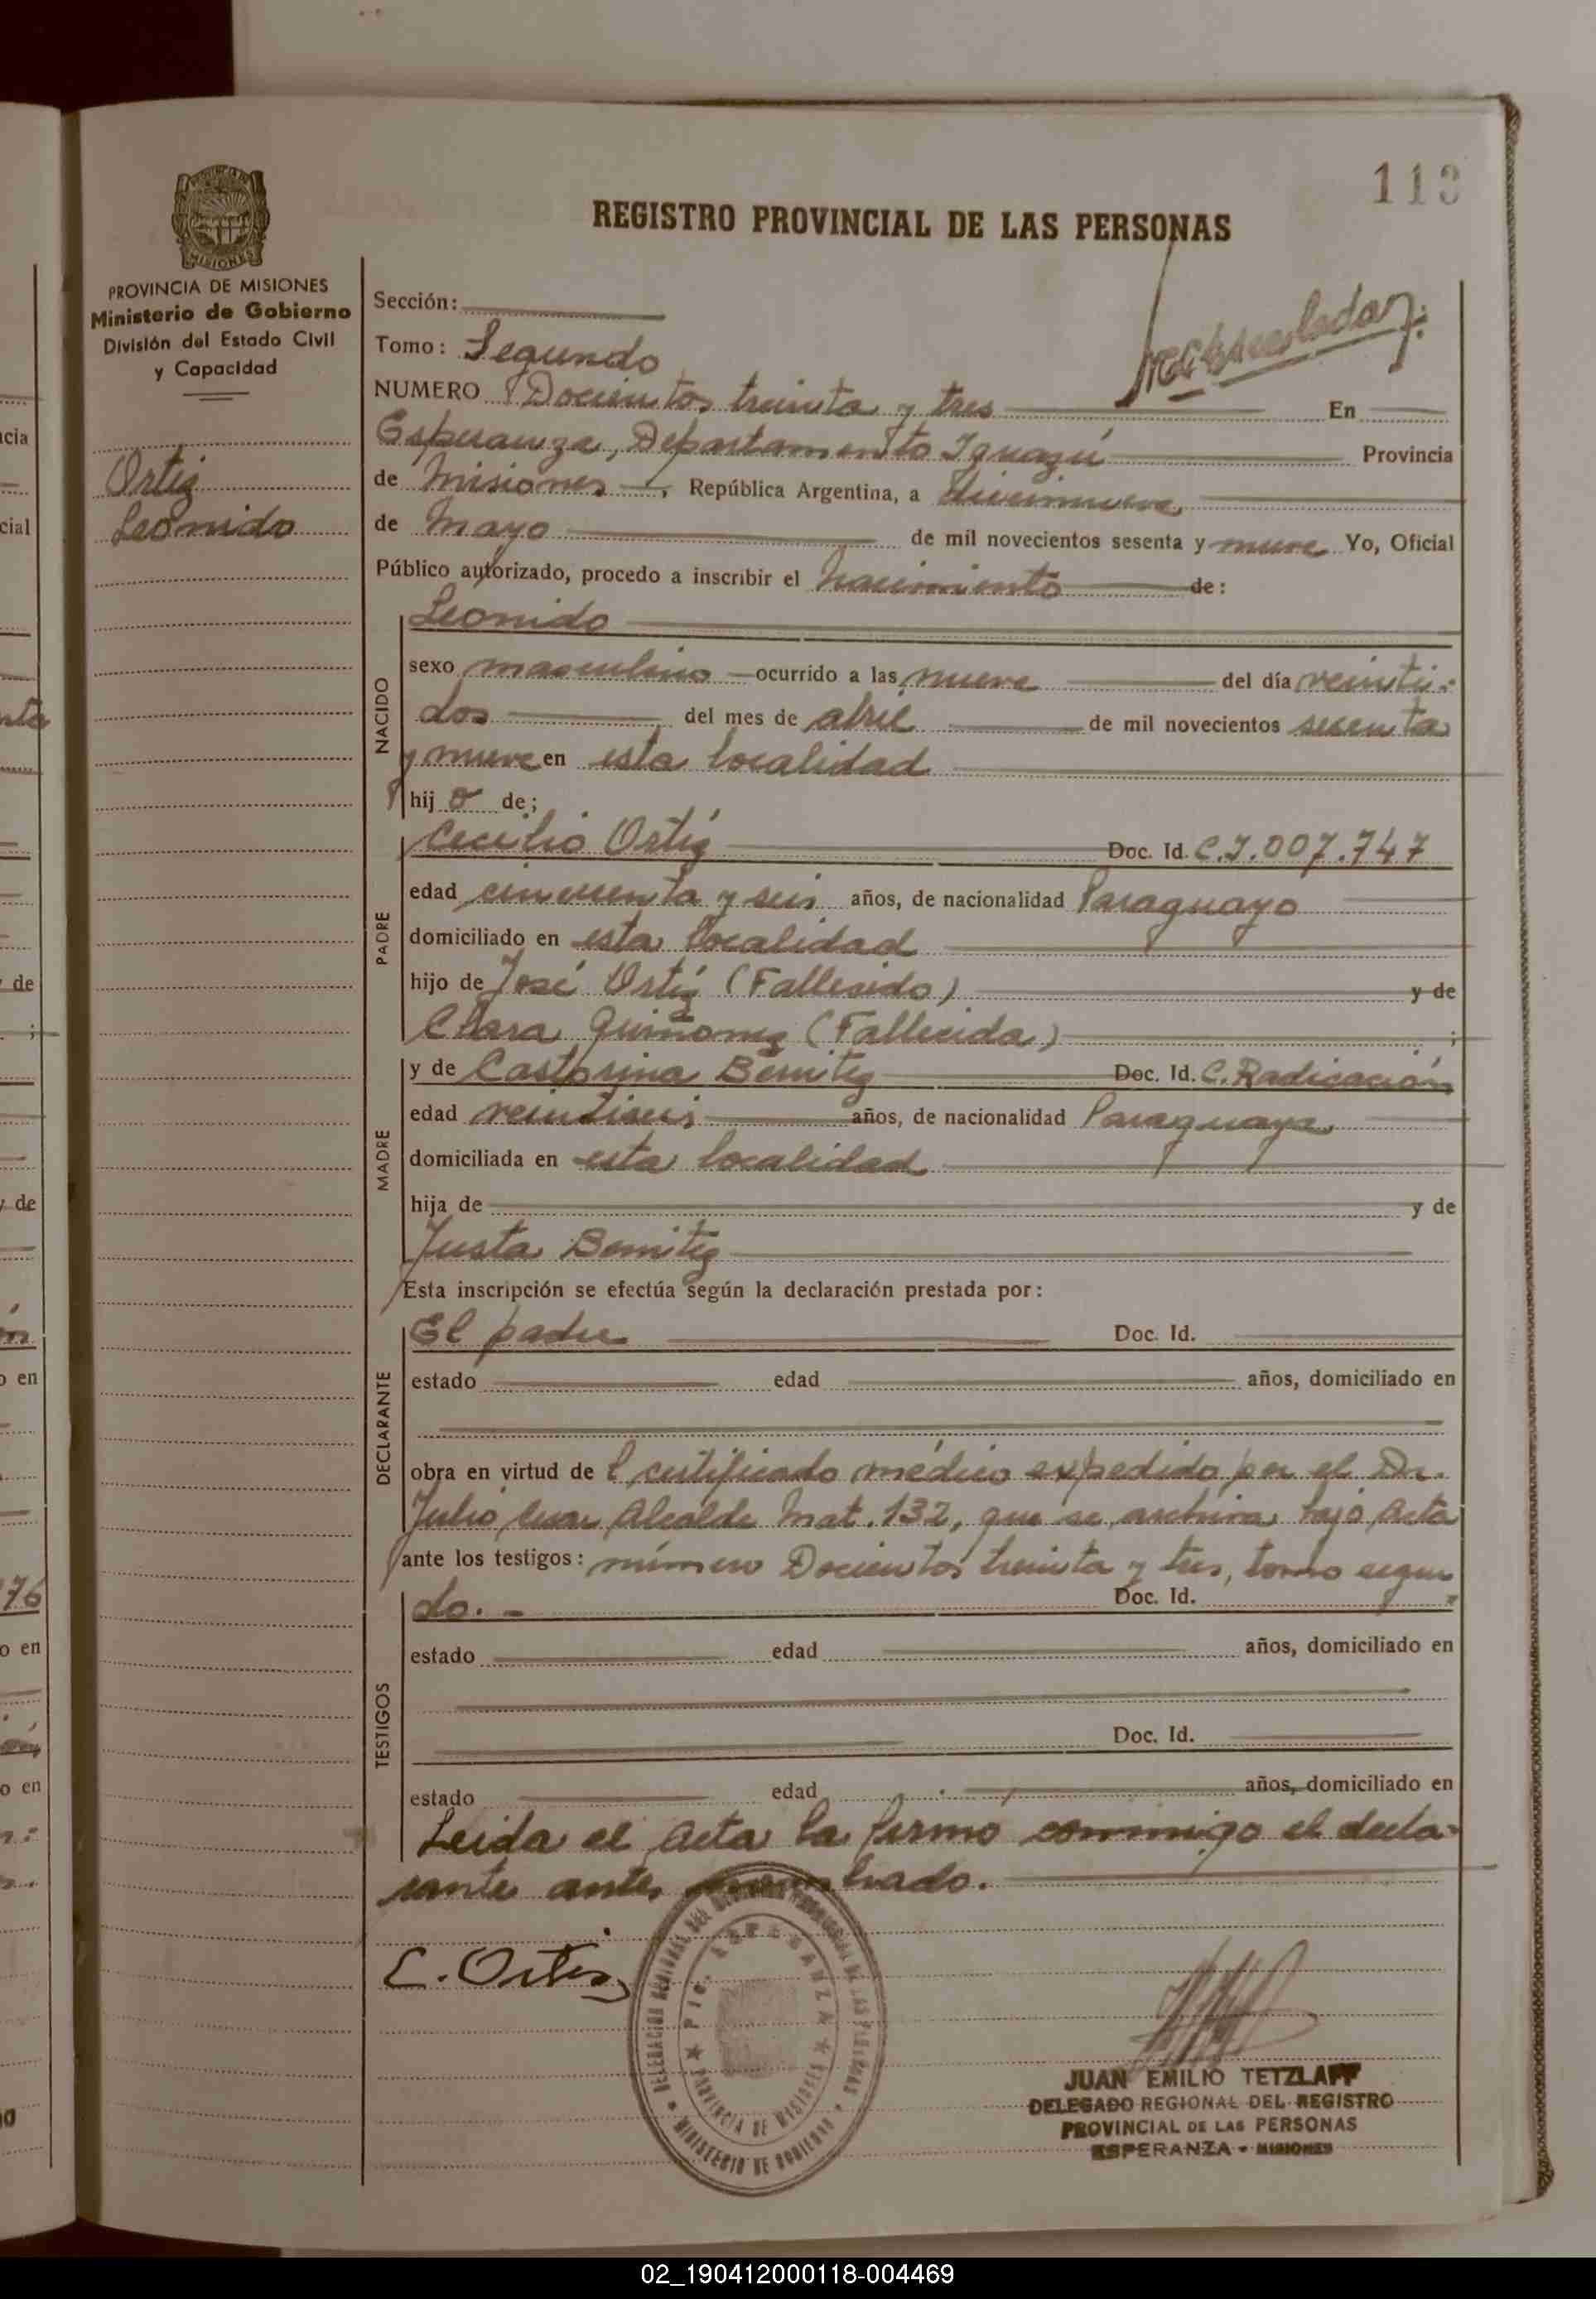 113
REGISTRO PROVINCIAL DE LAS PERSONAS
PROVINCIA DE MISIONES
Ministerio de Gobierno
División del Estado Civil
y Capacidad
Ortíz
Leonido
Sección:
Tomo: Segundo
NUMERO Docientos treinta y tres En
Esperanza, Departamento Iguazú Provincia
de Misiones, República Argentina, a diecinueve
de Mayo de mil novecientos sesenta y nueve Yo, Oficial
Público autorizado, procedo a inscribir el nacimiento de:
NACIDO
Leonido
sexo masculino ocurrido a las nueve del día veinti-
dos del mes de abril de mil novecientos sesenta
y nueve en esta localidad
hij o de;
PADRE
Cecilio Ortíz Doc. Id. C.I.007.747
edad cincuenta y seis años, de nacionalidad Paraguayo
domiciliado en esta localidad
hijo de José Ortíz (Fallecido) y de
Clara Quiñonez (Fallecida) ;
MADRE
y de Castorina Benitez Doc. Id. C. Radicación
edad veintiseis años, de nacionalidad Paraguaya
domiciliada en esta localidad
hija de y de
Justa Benitez
Esta inscripción se efectúa según la declaración prestada por:
DECLARANTE
El padre Doc. Id.
estado edad años, domiciliado en
obra en virtud de l certificado médico expedido por el Dr.
Julio Alcalde Mat. 132, que se archiva bajo Acta
ante los testigos: número Docientos treinta y tres, tomo segun
TESTIGOS
do. - Doc. Id.
estado edad años, domiciliado en
Doc. Id.
estado edad años, domiciliado en
Leida el Acta la firmó conmigo el decla-
rante antes nombrado.
C. Ortiz
DELEGACION REGIONAL DEL REGISTRO PROVINCIAL DE LAS PERSONAS
MINISTERIO DE GOBIERNO
PTO. ESPERANZA
PROVINCIA DE MISIONES
JUAN EMILIO TETZLAFF
DELEGADO REGIONAL DEL REGISTRO
PROVINCIAL DE LAS PERSONAS
ESPERANZA - MISIONES
02_190412000118-004469